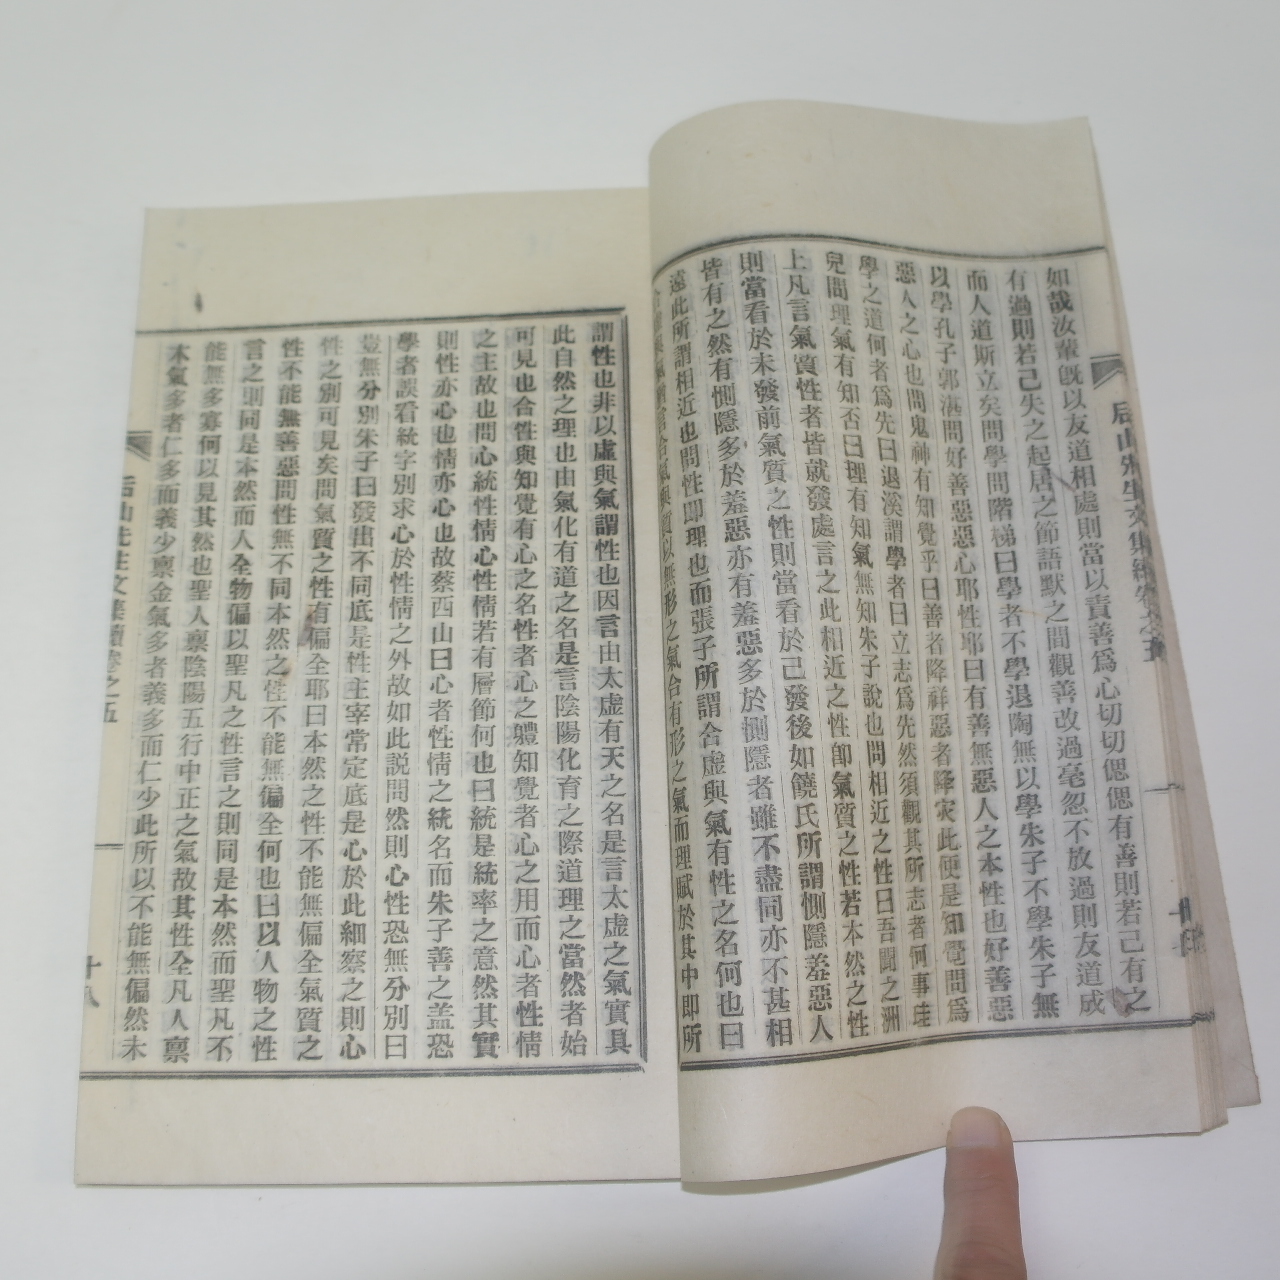 如哉汝輩旣以友道相處則當以責善爲心切切偲偲有善則若己有之
有過則若己失之起居之節語默之間觀善改過毫忽不放過則友道成
而人道斯立矣問學問階梯曰學者不學退陶無以學朱子不學朱子無
以學孔子郭湛問好善惡惡心耶性耶曰有善無惡人之本性也好善惡
惡人之心也問鬼神有知覺乎曰善者降祥惡者降灾此便是知覺問爲
學之道何者爲先曰退溪謂學者曰立志爲先然須觀其所志者何事珪
兒問理氣有知否曰理有知氣無知朱子說也問相近之性曰吾聞之洲
上凡言氣質性者皆就發處言之此相近之性卽氣質之性若本然之性
則當看於未發前氣質之性則當看於已發後如饒氏所謂惻隱羞惡人
皆有之然有惻隱多於羞惡亦有羞惡多於惻隱者雖不盡同亦不甚相
遠此所謂相近也問性卽理也而張子所謂合虛與氣有性之名何也曰
合氣與質以無形之氣合有形之氣而理賦於其中卽所
謂性也非以虛與氣謂性也因言由太虛有天之名是言太虛之氣實具
此自然之理也由氣化有道之名是言陰陽化育之際道理之當然者始
可見也合性與知覺有心之名性者心之軆知覺者心之用而心者性情
之主故也問心統性情心性情若有層節何也曰統是統率之意然其實
則性亦心也情亦心也故蔡西山曰心者性情之統名而朱子善之盖恐
學者誤看統字別求心於性情之外故如此說問然則心性恐無分別曰
豈無分別朱子曰發出不同底是性主宰常定底是心於此細察之則心
性之別可見矣問氣質之性有偏全耶曰本然之性不能無偏全氣質之
性不能無善惡問性無不同本然之性不能無偏全何也曰以人物之性
言之則同是本然而人全物偏以聖凡之性言之則同是本然而聖凡不
能無多寡何以見其然也聖人禀陰陽五行中正之氣故其性全凡人禀
木氣多者仁多而義少禀金氣多者義多而仁少此所以不能無偏然未
后山先生文集續卷之五
十八